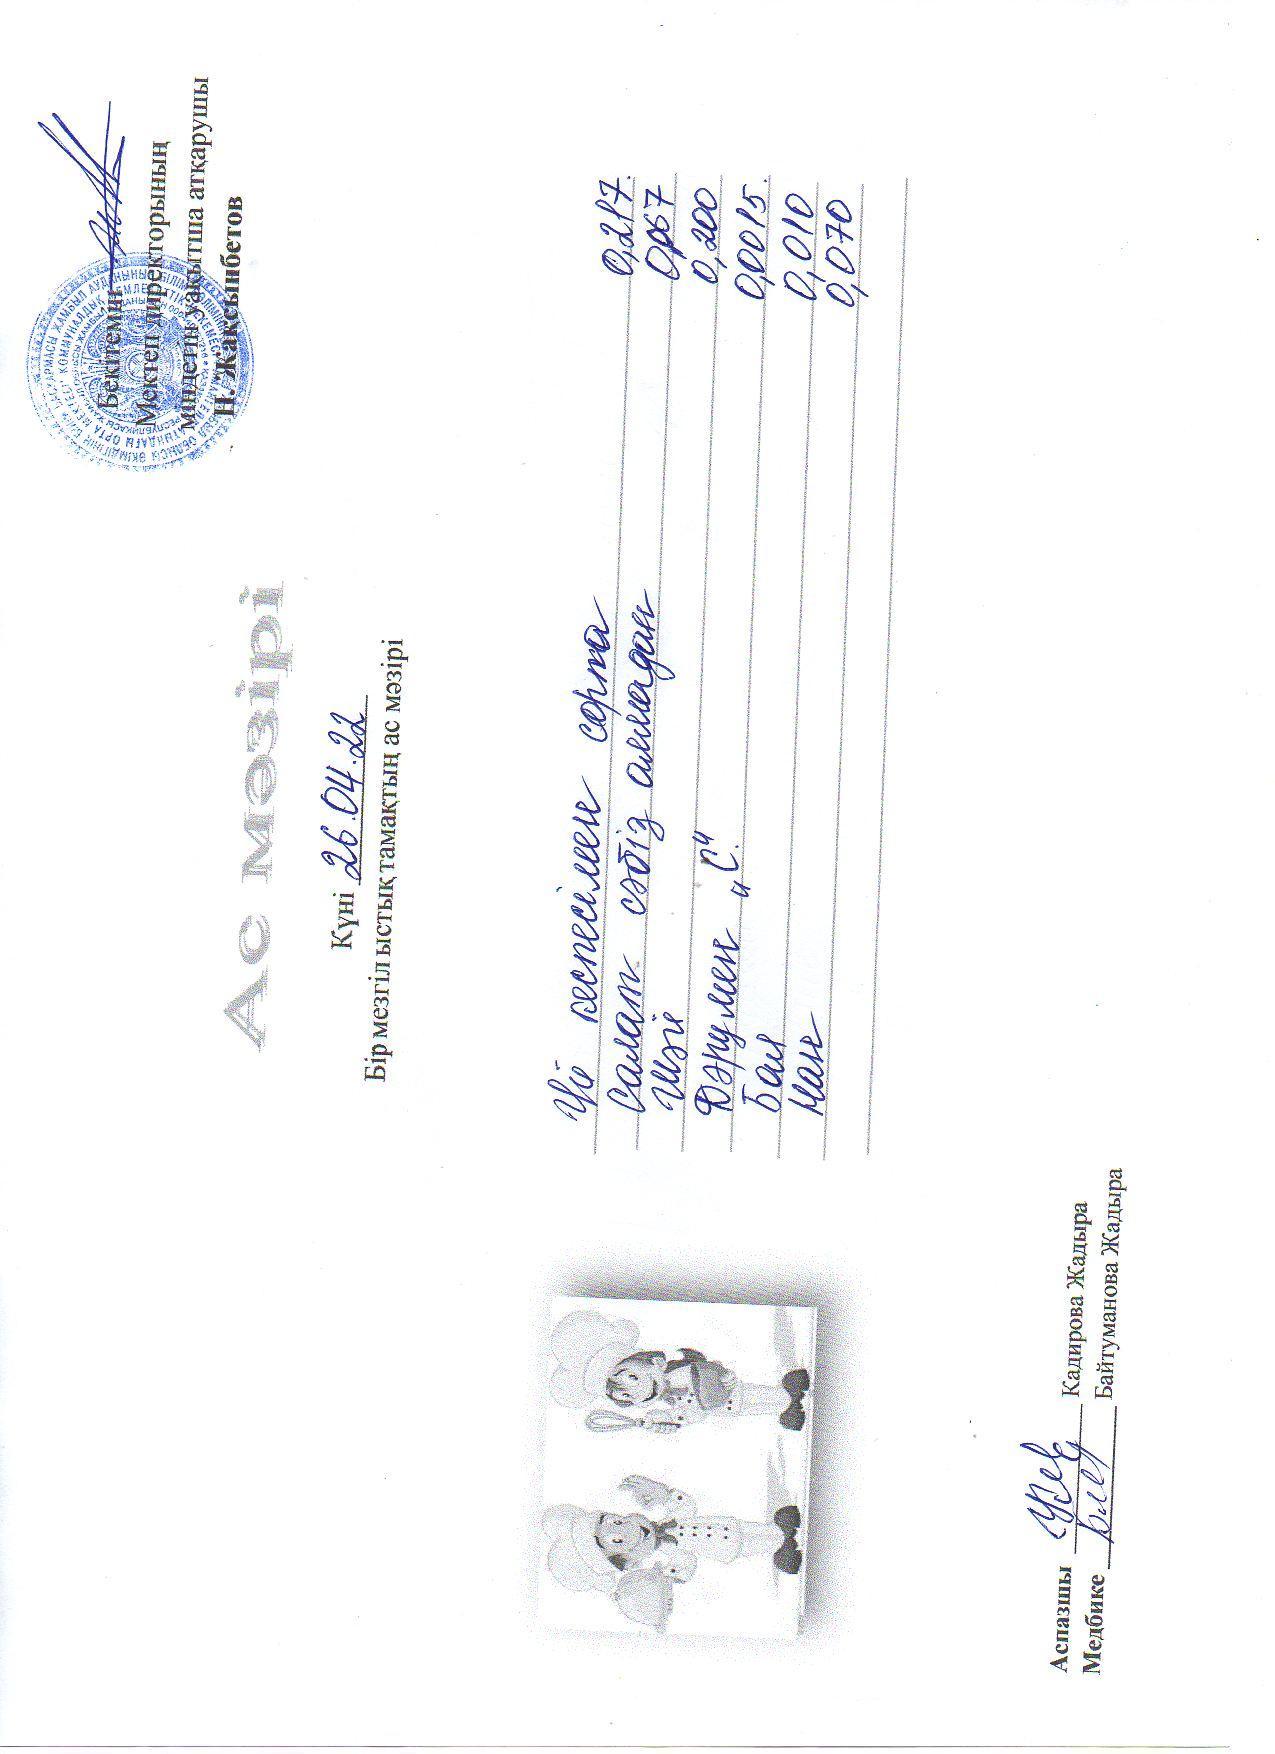 Бекітемін
Мектеп директорының
міндетін уақытша атқарушы
Н. Жақсынбетов
Ас мәзірі
Күні 26.04.22
Бір мезгіл ыстық тамақтың ас мәзірі
Үй кеспесімен сорпа 0,217.
Салат сәбіз алмадан 0,067
Шәй 0,200
Дәрумен "С" 0,0015.
Бал 0,010
Нан 0,070
Аспазшы Кадирова Жадыра
Медбике Байтуманова Жадыра